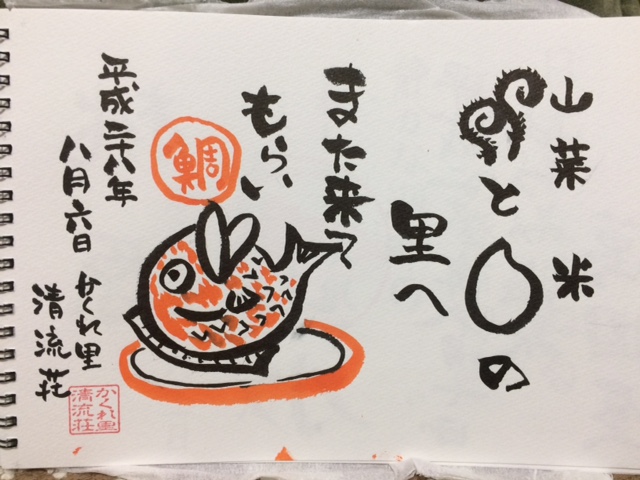 山菜 米
との
里へ
また来て
もらい
鯛
平成二十八年
八月六日
かくれ里
清流荘
かくれ里
清流荘